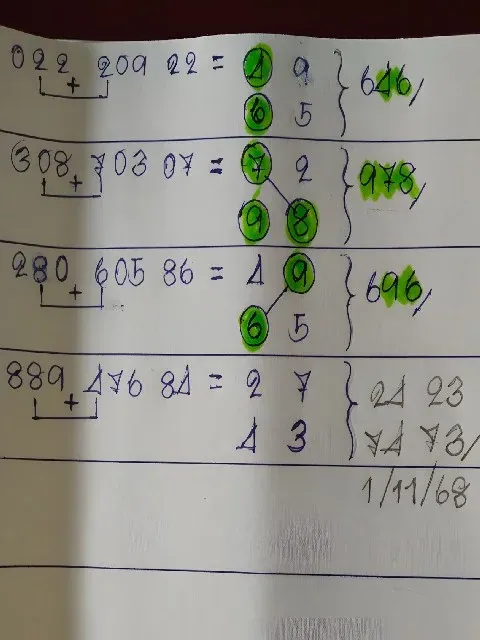 022 209 22 = 1 9 } 616/
+ 6 5
308 703 07 = 7 2 } 978/
+ 9 8
280 605 86 = 1 9 } 696/
+ 6 5
889 176 81 = 2 7 } 21 23
+ 1 3 71 73/
1/11/68